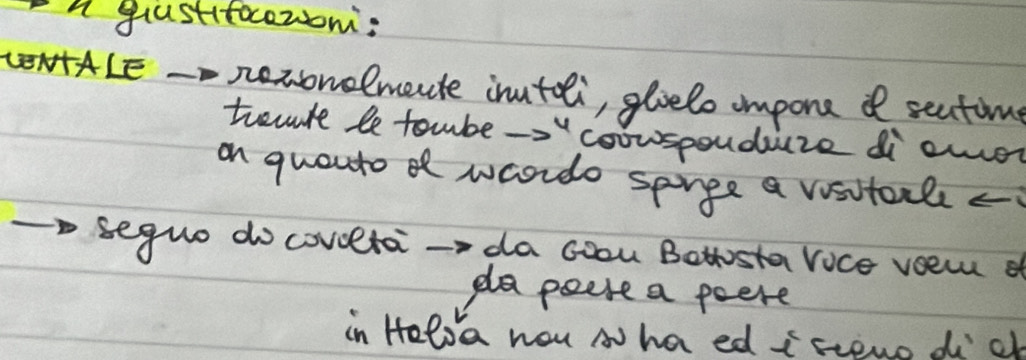 → 4 giustificazioni:
MENTALE → razionalmente inutili, glielo impone il sentime
tramite le tombe → "corrispondenza di amor
in quanto il ricordo spinge a visitarle ←
→ segno di civiltà → da Gian Battista Vico
da paese a paese
in Italia non si ha ed è segno di